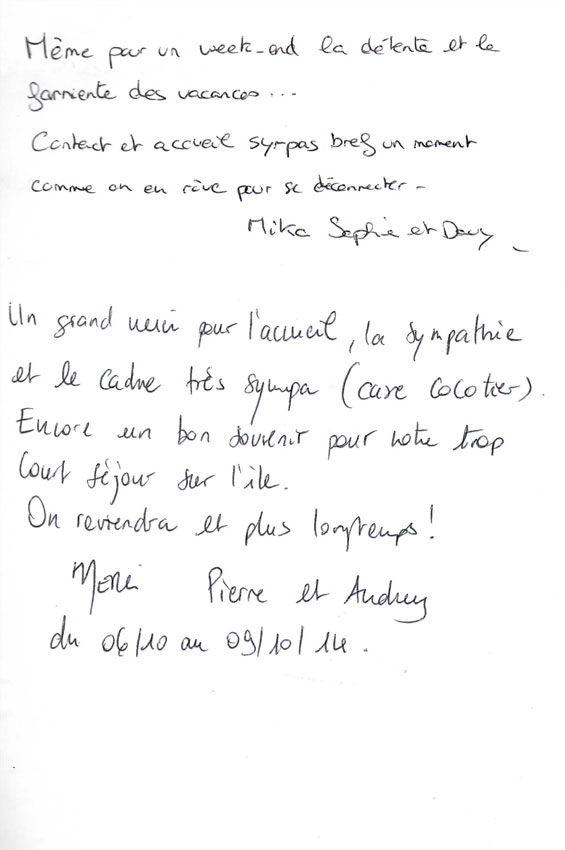 Même pour un week-end la détente et le
farniente des vacances...
Contact et accueil sympas bref un moment
comme on en rêve pour se déconnecter -
Mika Sophie et Davy
Un grand merci pour l'accueil, la sympathie
et le cadre très sympa (case Cocotier).
Encore un bon souvenir pour notre trop
court séjour sur l'île.
On reviendra et plus longtemps !
Merci Pierre et Audrey
du 06/10 au 09/10/14.